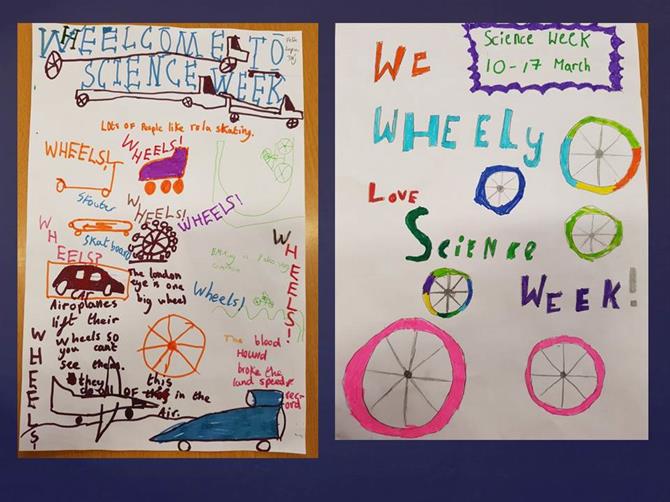 WHEELCOME TO
SCIENCE WEEK
Lots of People like rola skating.
WHEELS!
WHEELS!
Skouter
WHEELS!
WHEELS!
Skatboard
WHEELS?
CAr
The london
eye is one
big wheel
WHEELS!
Wheels!
Airoplanes
lift their
wheels so
you cant
see them.
they do all OF this in the
Air.
WHEELS!
The blood
Hound
broke the
land speed
record
We
Science Week
10-17 March
WHEELY
Love
Science
Week!